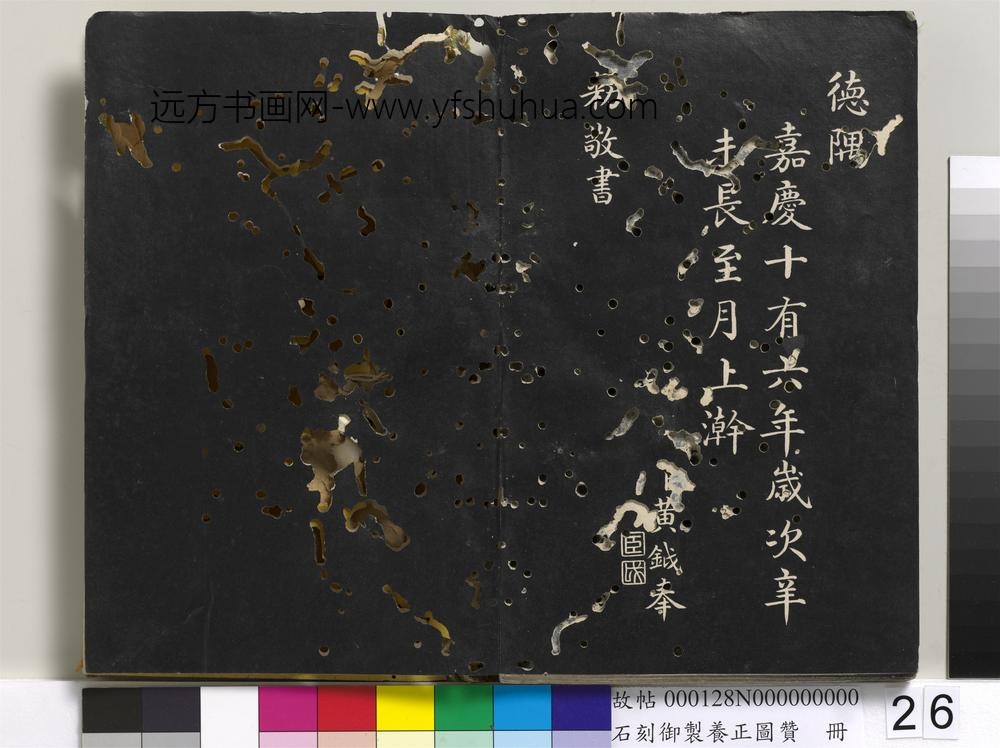 德隅
嘉慶十有六年歲次辛
未長至月上澣
黃鉞奉
勅敬書
远方书画网-www.yfshuhua.com
故帖 000128N000000000
石刻御製養正圖贊 冊
26